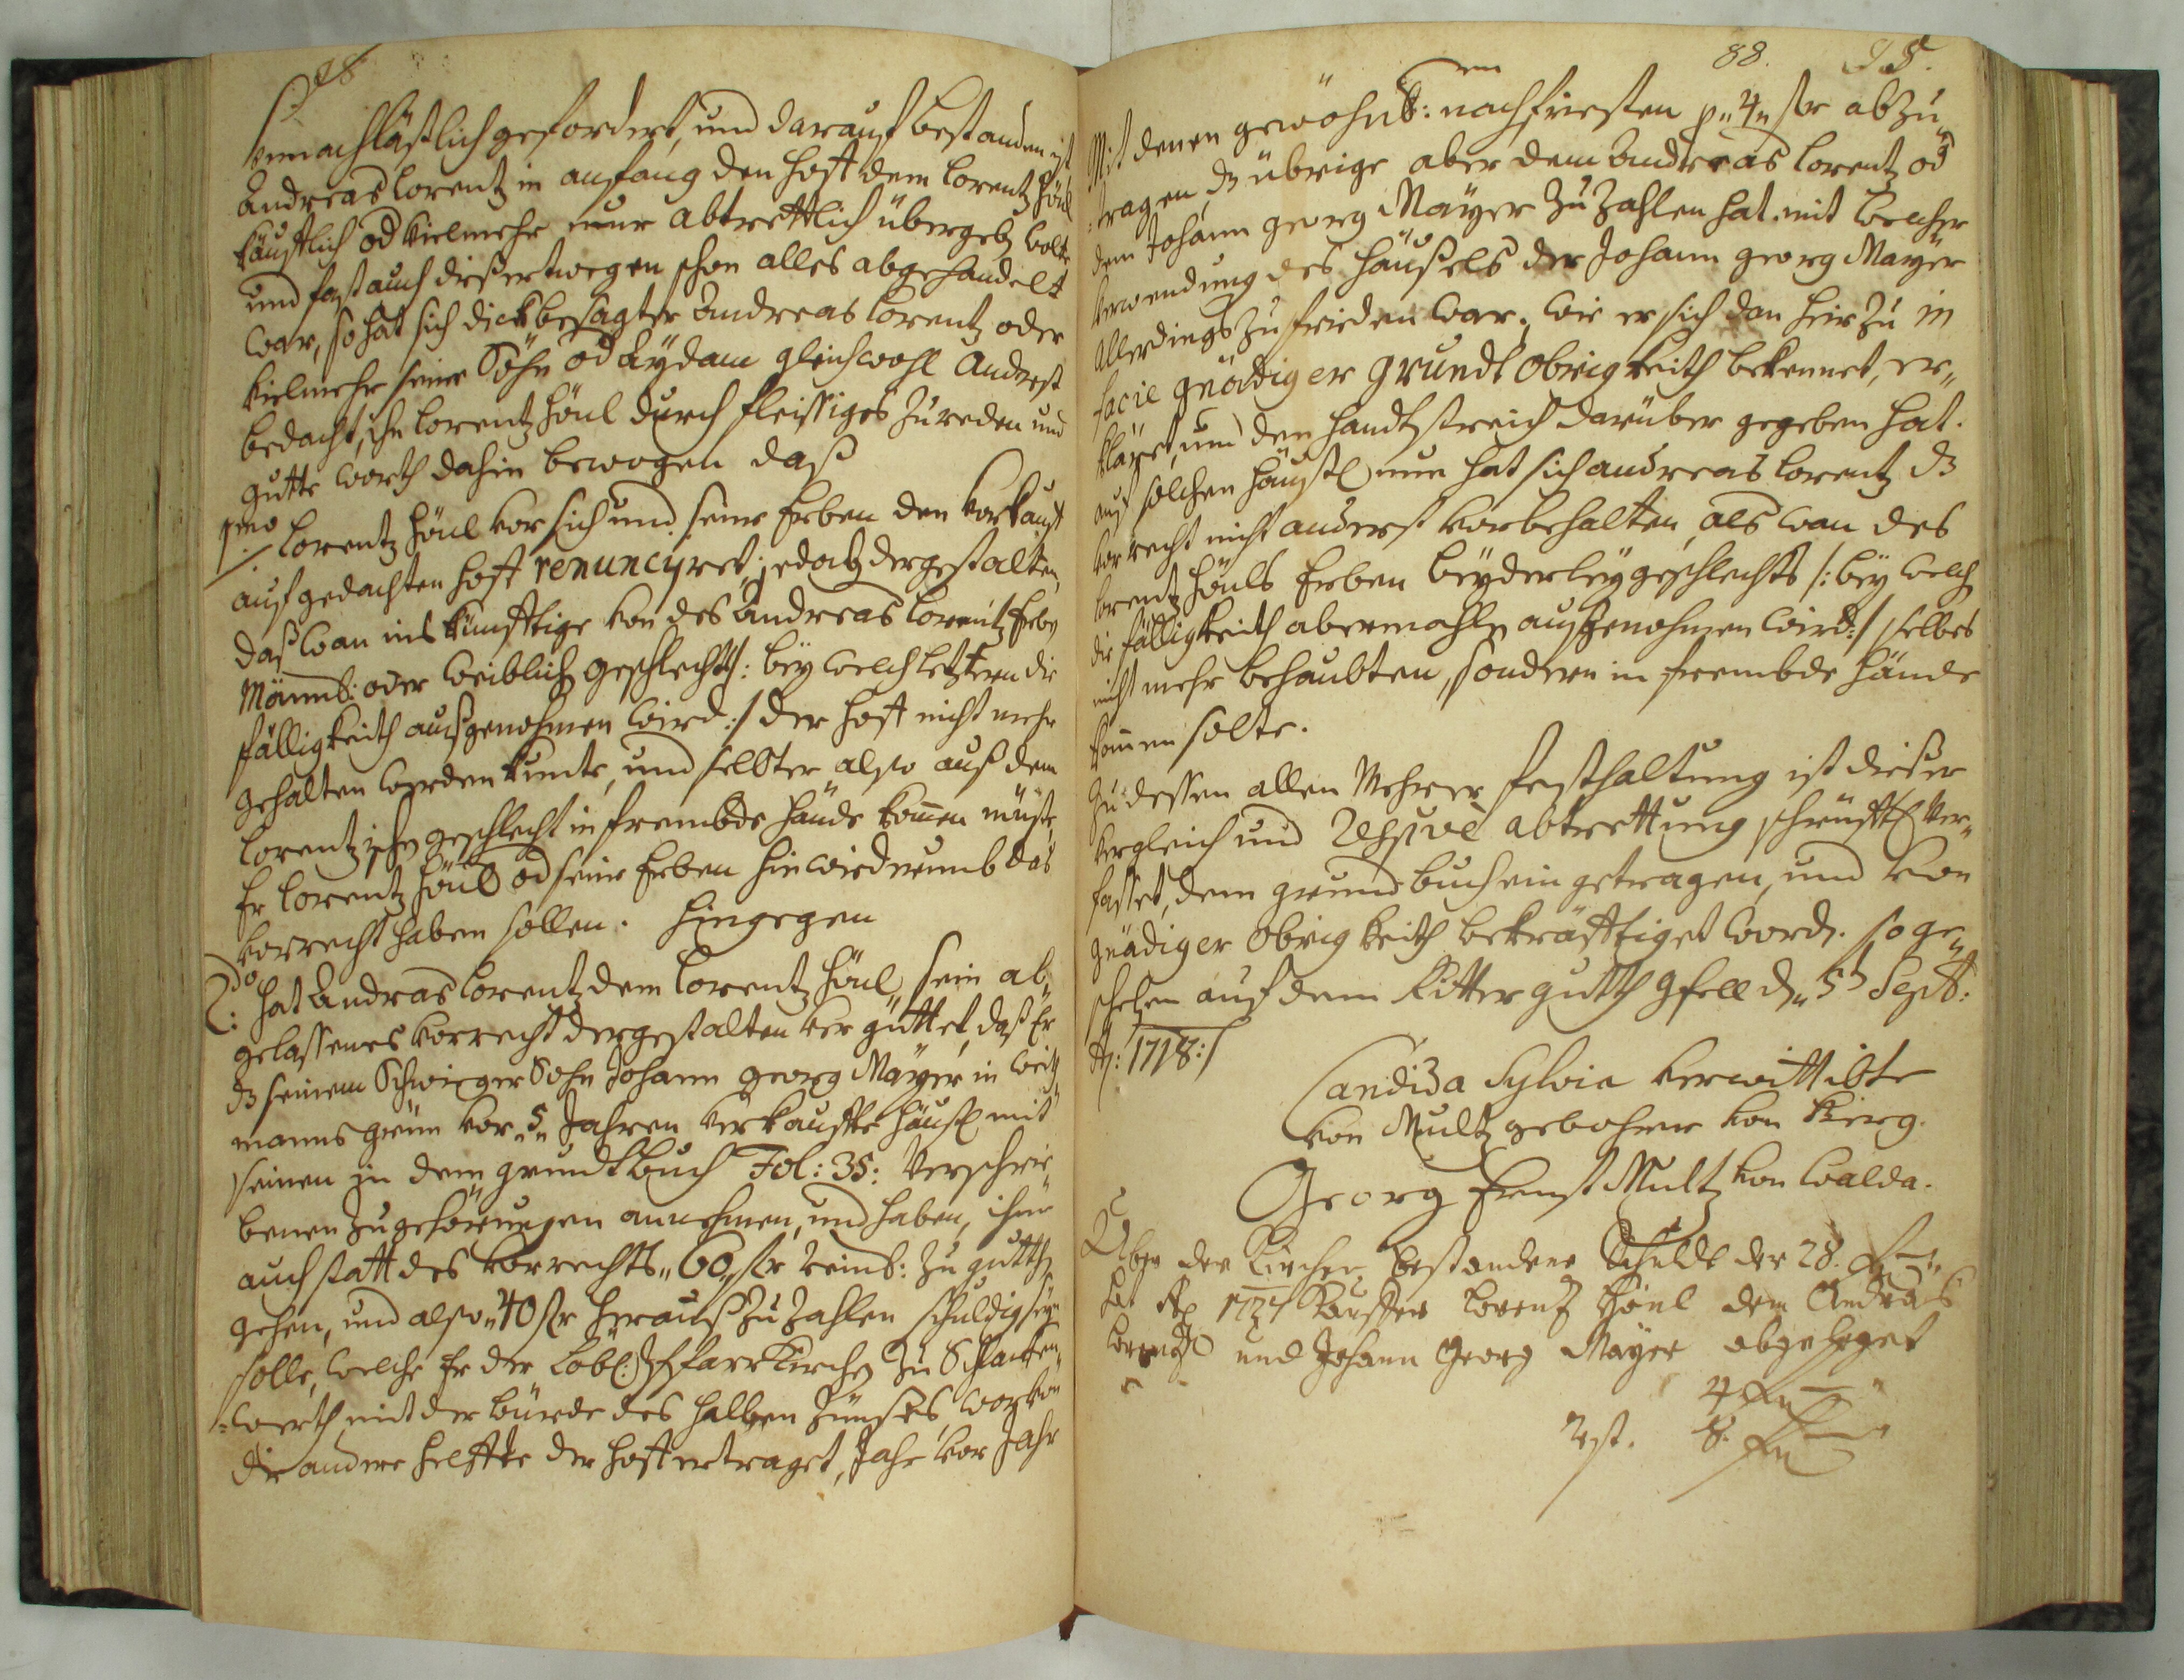 unnachläßlich gefordert, und darauf bestanden ist
Andreas Lorentz in anfang den Hoff dem Lorentz Hönl
käufflich od vielmehr nur abtrettlich übergeb wolte
und fast auch dießertwegen schon alles abgehandelt
war, so hat sich dickbesagter Andreas Lorentz oder
vielmehr seine Söhn od Aydam gleichwohl anderst
bedacht, ihn Lorentz Hönl durch fleissiges zureden und
gutte worth dahin bewogen daß
1mo Lorentz Hönl vor sich und seine Erben den Vorkauff
auf gedachten Hoff renunciret, jedoch dergestalten,
daß wan ins künfftige von des Andreas Lorentz Erben
Männl: oder Weiblich geschlechts /: bey welch letztern die
fälligkeith außgenohmen wird :/ der Hoff nicht mehr
gehalten werden kunte, und selbter also auß dem
Lorentzischen geschlecht in frembde Hände kommen müste,
Er Lorentz Hönl od seine Erben hinwiederumb das
vorrecht haben sollen. Hingegen
2do: hat Andreas Lorentz dem Lorentz Hönl sein ab„
gelassenes vorrecht dergestalten vergüttet, daß Er
seinem Schwieger Sohn Johann Georg Mayer in Weitz„
mannsgrün vor „5„ Jahren verkauffte Häußl mit
seinen in dem grundtbuch Fol: 35: verschrie„
benen zugehörungen annehmen, und haben, ihme
auch statt des vorrechts „60„ fr Reinl: zu gutth
gehen, und also „40 fr herauß zu zahlen schuldig seyn
solle, welche Er der Löbl: Pfarrkirchen zu Schlacken„
werth mit der bürde des halben Zünßes, worvon
die andere helffte der Hoff ertraget, Jahr vor Jahr
88.
Mit denen gewöhnl: nachfristen p „4„ fr abzu„
tragen, übrige aber dem Andreas Lorentz od
dem Johann Georg Mayer zu zahlen hat. mit welcher
verwendung des Häußels der Johann Georg Mayer
allerdings zufrieden war. wie er sich dan hierzu in
facie gnädiger Grundt Obrigkeith bekennet, er„
kläret, und den handtstreich darüber gegeben hat.
auf solchen Häußl nun hat sich Andreas Lorentz
vorrecht nicht anderst vorbehalten, als wan des
Lorentz Hönls Erben beyderley geschlechts /: bey welch
die fälligkeith abermahln außgenohmen wird :/ selbes
nicht mehr behaubten, sondern in frembde Hände
kommen solte.
Zu dessen allen Mehrer festhaltung ist dießer
Vergleich und abtrettung schrüfftl ver„
fasset, dem grundbuch eingetragen, und von
gnädiger Obrigkeith bekräfftiget word. So ge„
schehen auf dem Rittergutth Gfell d. 5t Sept:
Ao: 1718:/
Candida Sylvia verwittibte
von Multz gebohrne von Kberg.
Georg Ernst Multz von Walda.
Über der Kirchen bestandene Schuldt der 28.
hat Ao 1724 Kauffer Lorentz Hönl dem Andreas
Lorentz und Johann Georg Mayer abgeleget
4
Rst. 8.